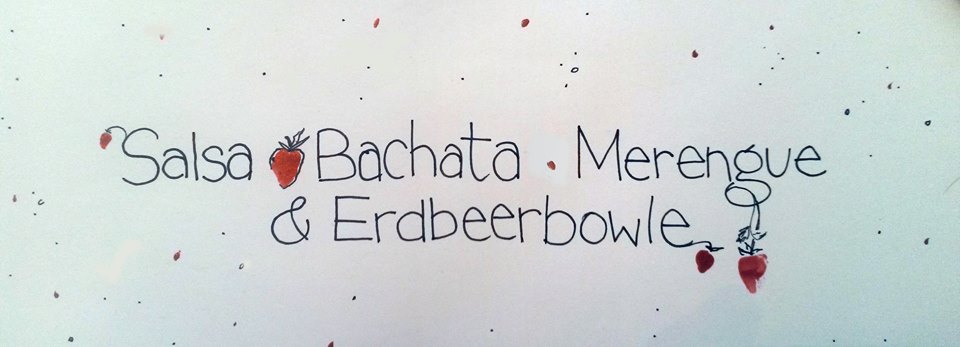 Salsa Bachata · Merengue
& Erdbeerbowle